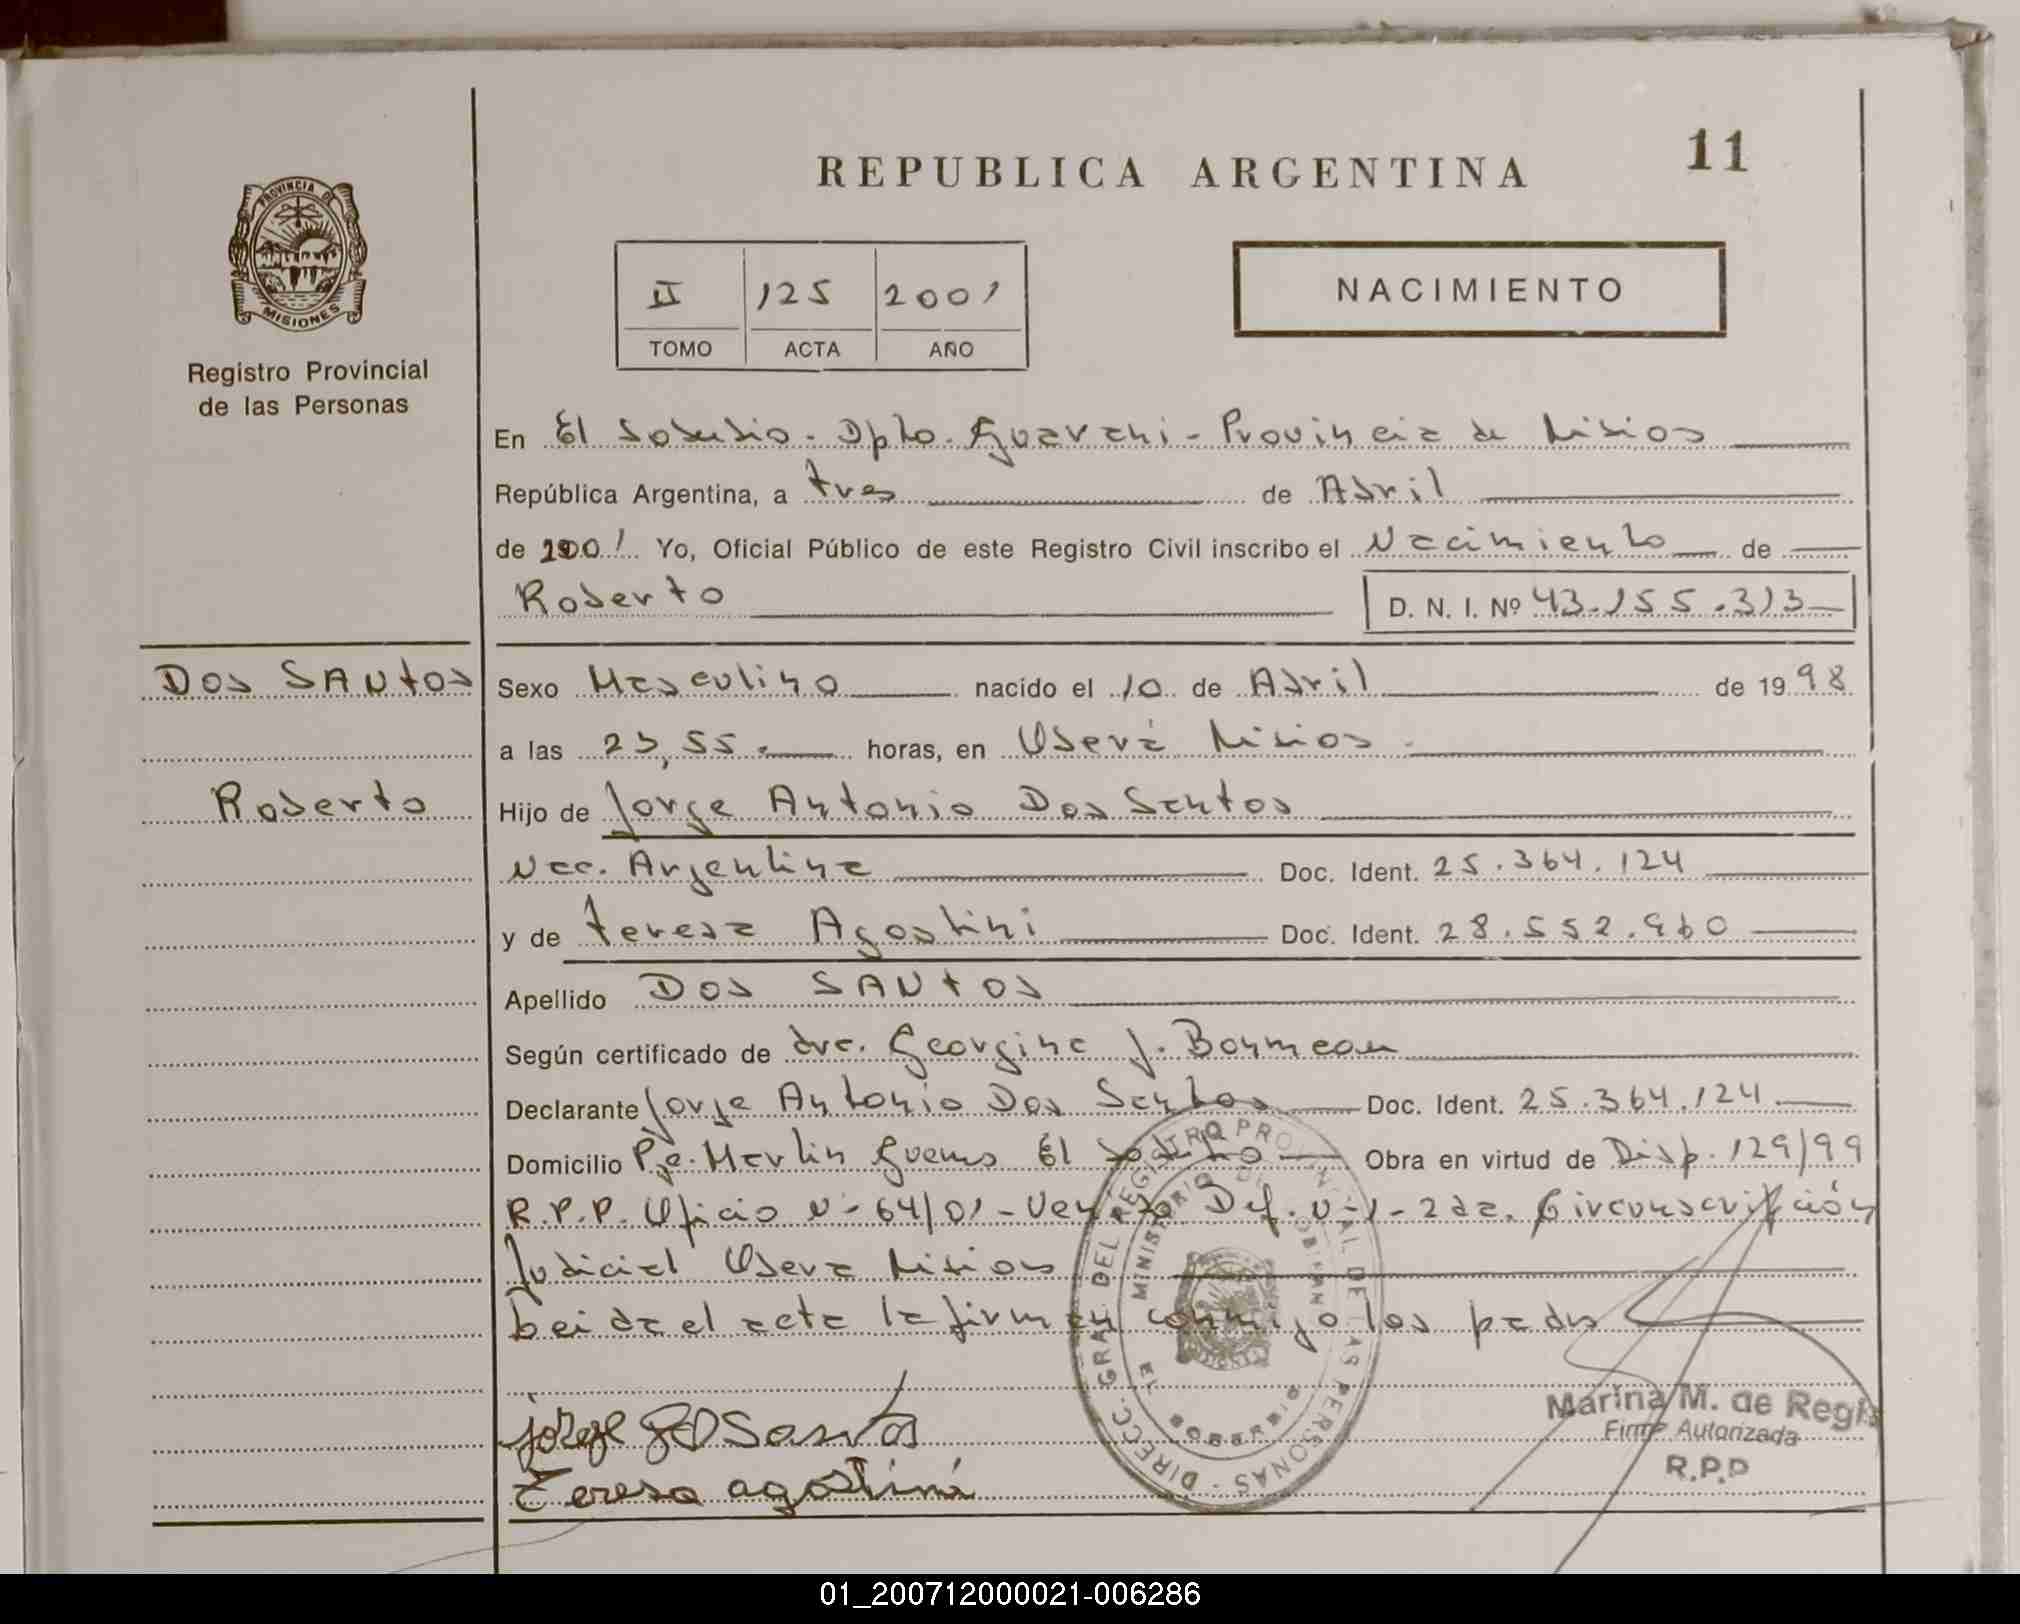 11
REPUBLICA ARGENTINA
PROVINCIA DE
MISIONES
Registro Provincial
de las Personas
II 125 2001
TOMO ACTA AÑO
NACIMIENTO
En El Soberbio - Dpto. Guarani - Provincia de Misiones
República Argentina, a tres de Abril
de 2001 Yo, Oficial Público de este Registro Civil inscribo el Nacimiento de
Roberto D. N. I. Nº 43.155.313
Dos SANtos
Sexo Masculino nacido el 10 de Abril de 1998
a las 23,55 horas, en Oberá Misiones
Roberto
Hijo de Jorge Antonio Dos Santos
Nac. Argentina Doc. Ident. 25.364.124
y de teresa Agostini Doc. Ident. 28.552.960
Apellido DOS SANtOS
Según certificado de dra. Georgina J.
Declarante Jorge Antonio Dos Santos Doc. Ident. 25.364.124
Domicilio Pje. Martin Guemes El Soberbio Obra en virtud de Disp. 129/99
R.P.P. Oficio Nº 64/01 - Def. Nº 1 - 2da. Circunscripción
Judicial Obera Misiones
Leida el acta la firman conmigo los padres
jorge DOSantos
Teresa agostini
DIRECC. GRAL. DEL REGISTRO PROVINCIAL DE LAS PERSONAS
MINISTERIO DE GOBIERNO
EL SOBERBIO
Marina M. de Regis
Firma Autorizada
R.P.P
01_200712000021-006286